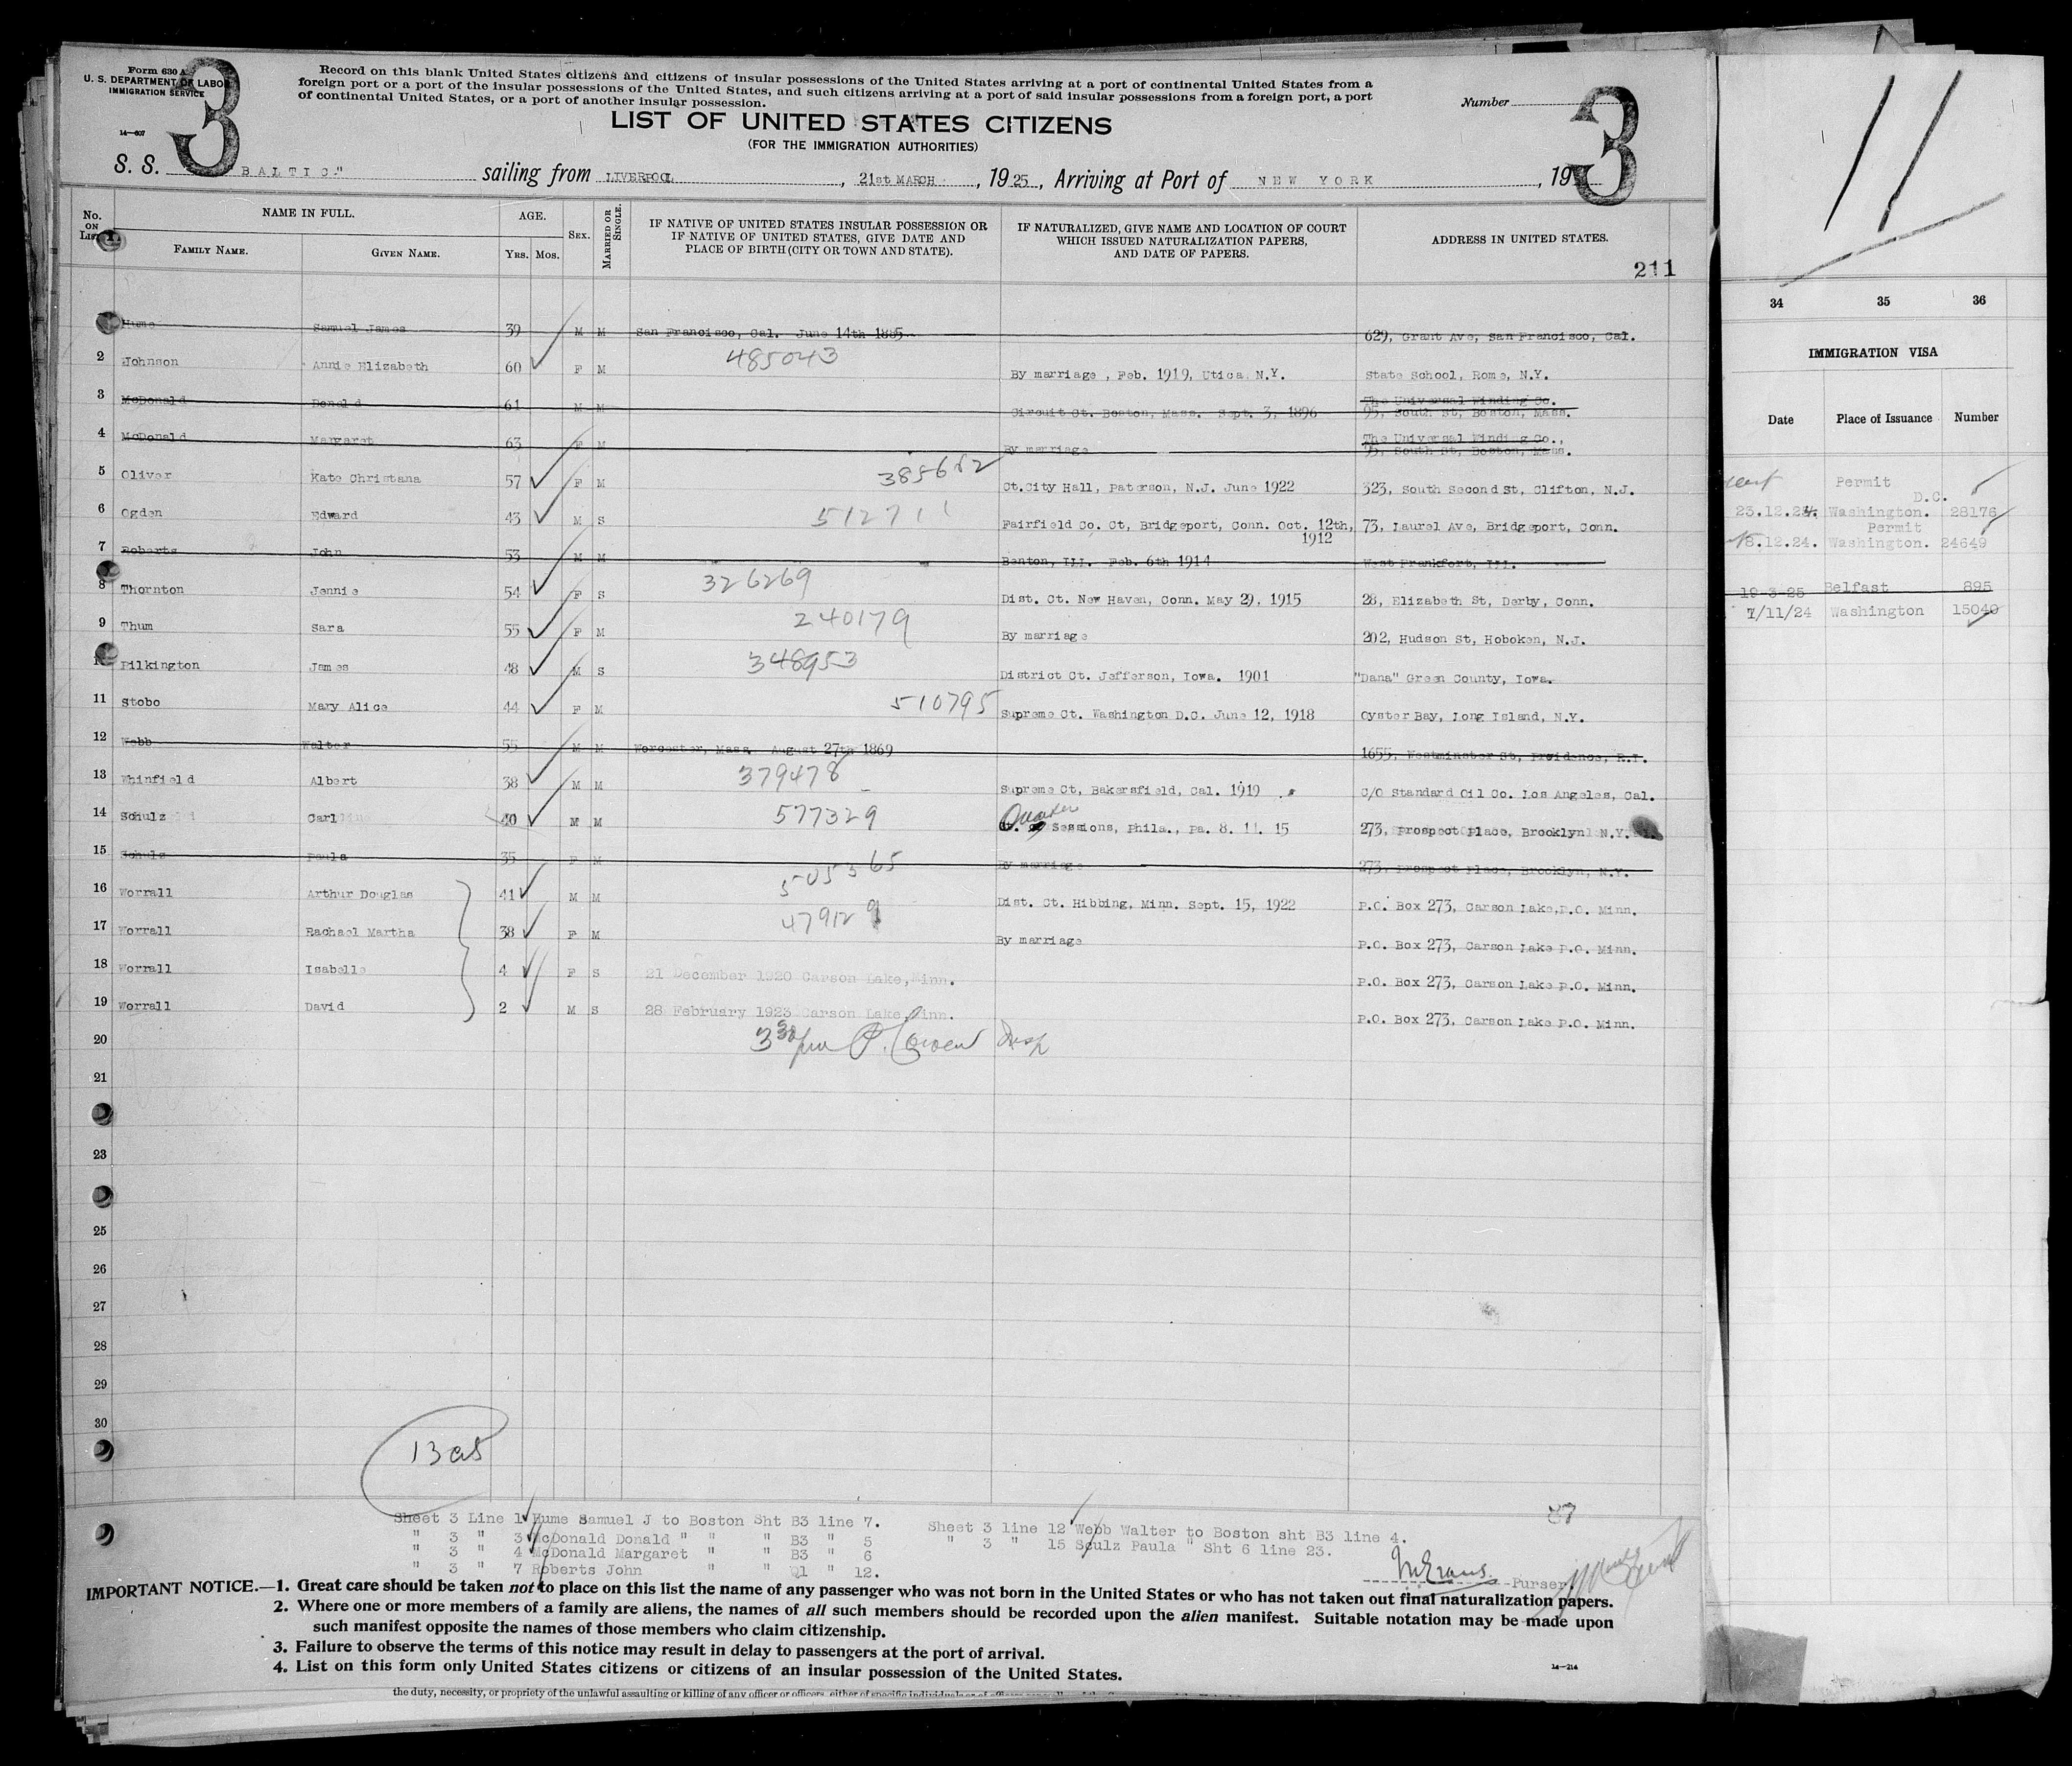 Form 630 A
U. S. DEPARTMENT OF LABOR
IMMIGRATION SERVICE
14—607
3
Record on this blank United States citizens and citizens of insular possessions of the United States arriving at a port of continental United States from a
foreign port or a port of the insular possessions of the United States, and such citizens arriving at a port of said insular possessions from a foreign port, a port
of continental United States, or a port of another insular possession.
Number
3
LIST OF UNITED STATES CITIZENS
(FOR THE IMMIGRATION AUTHORITIES)
S. S. BALTIC." sailing from LIVERPOOL, 21st MARCH, 1925, Arriving at Port of NEW YORK, 19
No. ON LIST
NAME IN FULL.
FAMILY NAME. GIVEN NAME.
AGE.
YRS. MOS.
SEX.
MARRIED OR SINGLE.
IF NATIVE OF UNITED STATES INSULAR POSSESSION OR
IF NATIVE OF UNITED STATES, GIVE DATE AND
PLACE OF BIRTH (CITY OR TOWN AND STATE).
IF NATURALIZED, GIVE NAME AND LOCATION OF COURT
WHICH ISSUED NATURALIZATION PAPERS,
AND DATE OF PAPERS.
ADDRESS IN UNITED STATES.
211
Hume Samuel James 39 M M San Francisco, Cal. June 14th 1885 629, Grant Ave, San Francisco, Cal.
2 Johnson Annie Elizabeth 60 F M 485043 By marriage, Feb. 1919, Utica N.Y. State School, Rome, N.Y.
3 McDonald Donald 61 M M Circuit Ct. Boston, Mass. Sept. 3, 1896 The Universal Winding Co.
95, South St, Boston, Mass.
4 McDonald Margaret 63 F M By marriage The Universal Winding Co.,
95, South St, Boston, Mass.
5 Oliver Kate Christana 57 F M 385682 Ct.City Hall, Paterson, N.J. June 1922 323, South Second St, Clifton, N.J.
6 Ogden Edward 43 M S 512711 Fairfield Co. Ct, Bridgeport, Conn. Oct. 12th, 1912 73, Laurel Ave, Bridgeport, Conn.
7 Roberts John 53 M M Benton, Ill. Feb. 6th 1914 West Frankfort, Ill.
8 Thornton Jennie 54 F S 326269 Dist. Ct. New Haven, Conn. May 29, 1915 28, Elizabeth St, Derby, Conn.
9 Thum Sara 55 F M 240179 By marriage 202, Hudson St, Hoboken, N.J.
Pilkington James 48 M S 348953 District Ct. Jefferson, Iowa. 1901 "Dana" Green County, Iowa.
11 Stobo Mary Alice 44 F M 510795 Supreme Ct. Washington D.C. June 12, 1918 Oyster Bay, Long Island, N.Y.
12 Webb Walter 55 M M Worcester, Mass. August 27th 1869 1655, Westminster St, Providence, R.I.
13 Whinfield Albert 38 M M 379478 Supreme Ct, Bakersfield, Cal. 1919 C/O Standard Oil Co. Los Angeles, Cal.
14 Schulz Carl 40 M M 577329 Quarter Sessions, Phila., Pa. 8. 11. 15 273, Prospect Place, Brooklyn N.Y.
15 Schulz Paula 35 F M By marriage 273, Prospect Place, Brooklyn, N.Y.
16 Worrall Arthur Douglas 41 M M 505565 Dist. Ct. Hibbing, Minn. Sept. 15, 1922 P.O. Box 273, Carson Lake,P.O. Minn.
17 Worrall Rachael Martha 38 F M 479129 By marriage P.O. Box 273, Carson Lake P.O. Minn.
18 Worrall Isabelle 4 F S 21 December 1920 Carson Lake, Minn. P.O. Box 273, Carson Lake P.O. Minn.
19 Worrall David 2 M S 28 February 1923 Carson Lake, Minn. P.O. Box 273, Carson Lake P.O. Minn.
20 3 30 pm P. Cowen Insp
21
23
25
26
27
28
29
30
Sheet 3 Line 1 Hume Samuel J to Boston Sht B3 line 7.
" 3 " 3 McDonald Donald " " " B3 " 5
" 3 " 4 McDonald Margaret " " B3 " 6
" 3 " 7 Roberts John " " Q1 " 12.
Sheet 3 line 12 Webb Walter to Boston sht B3 line 4.
" 3 " 15 Sculz Paula " Sht 6 line 23.
Purser
IMPORTANT NOTICE.—1. Great care should be taken not to place on this list the name of any passenger who was not born in the United States or who has not taken out final naturalization papers.
2. Where one or more members of a family are aliens, the names of all such members should be recorded upon the alien manifest. Suitable notation may be made upon
such manifest opposite the names of those members who claim citizenship.
3. Failure to observe the terms of this notice may result in delay to passengers at the port of arrival.
4. List on this form only United States citizens or citizens of an insular possession of the United States.
14—214
the duty, necessity, or propriety of the unlawful assaulting or killing of any officer or officers, either of specific individuals or of officers
11
34 35 36
IMMIGRATION VISA
Date Place of Issuance Number
Permit
D.C.
23.12.24. Washington. 28176
Permit
18.12.24. Washington. 24649
19-3-25 Belfast 895
7/11/24 Washington 15040